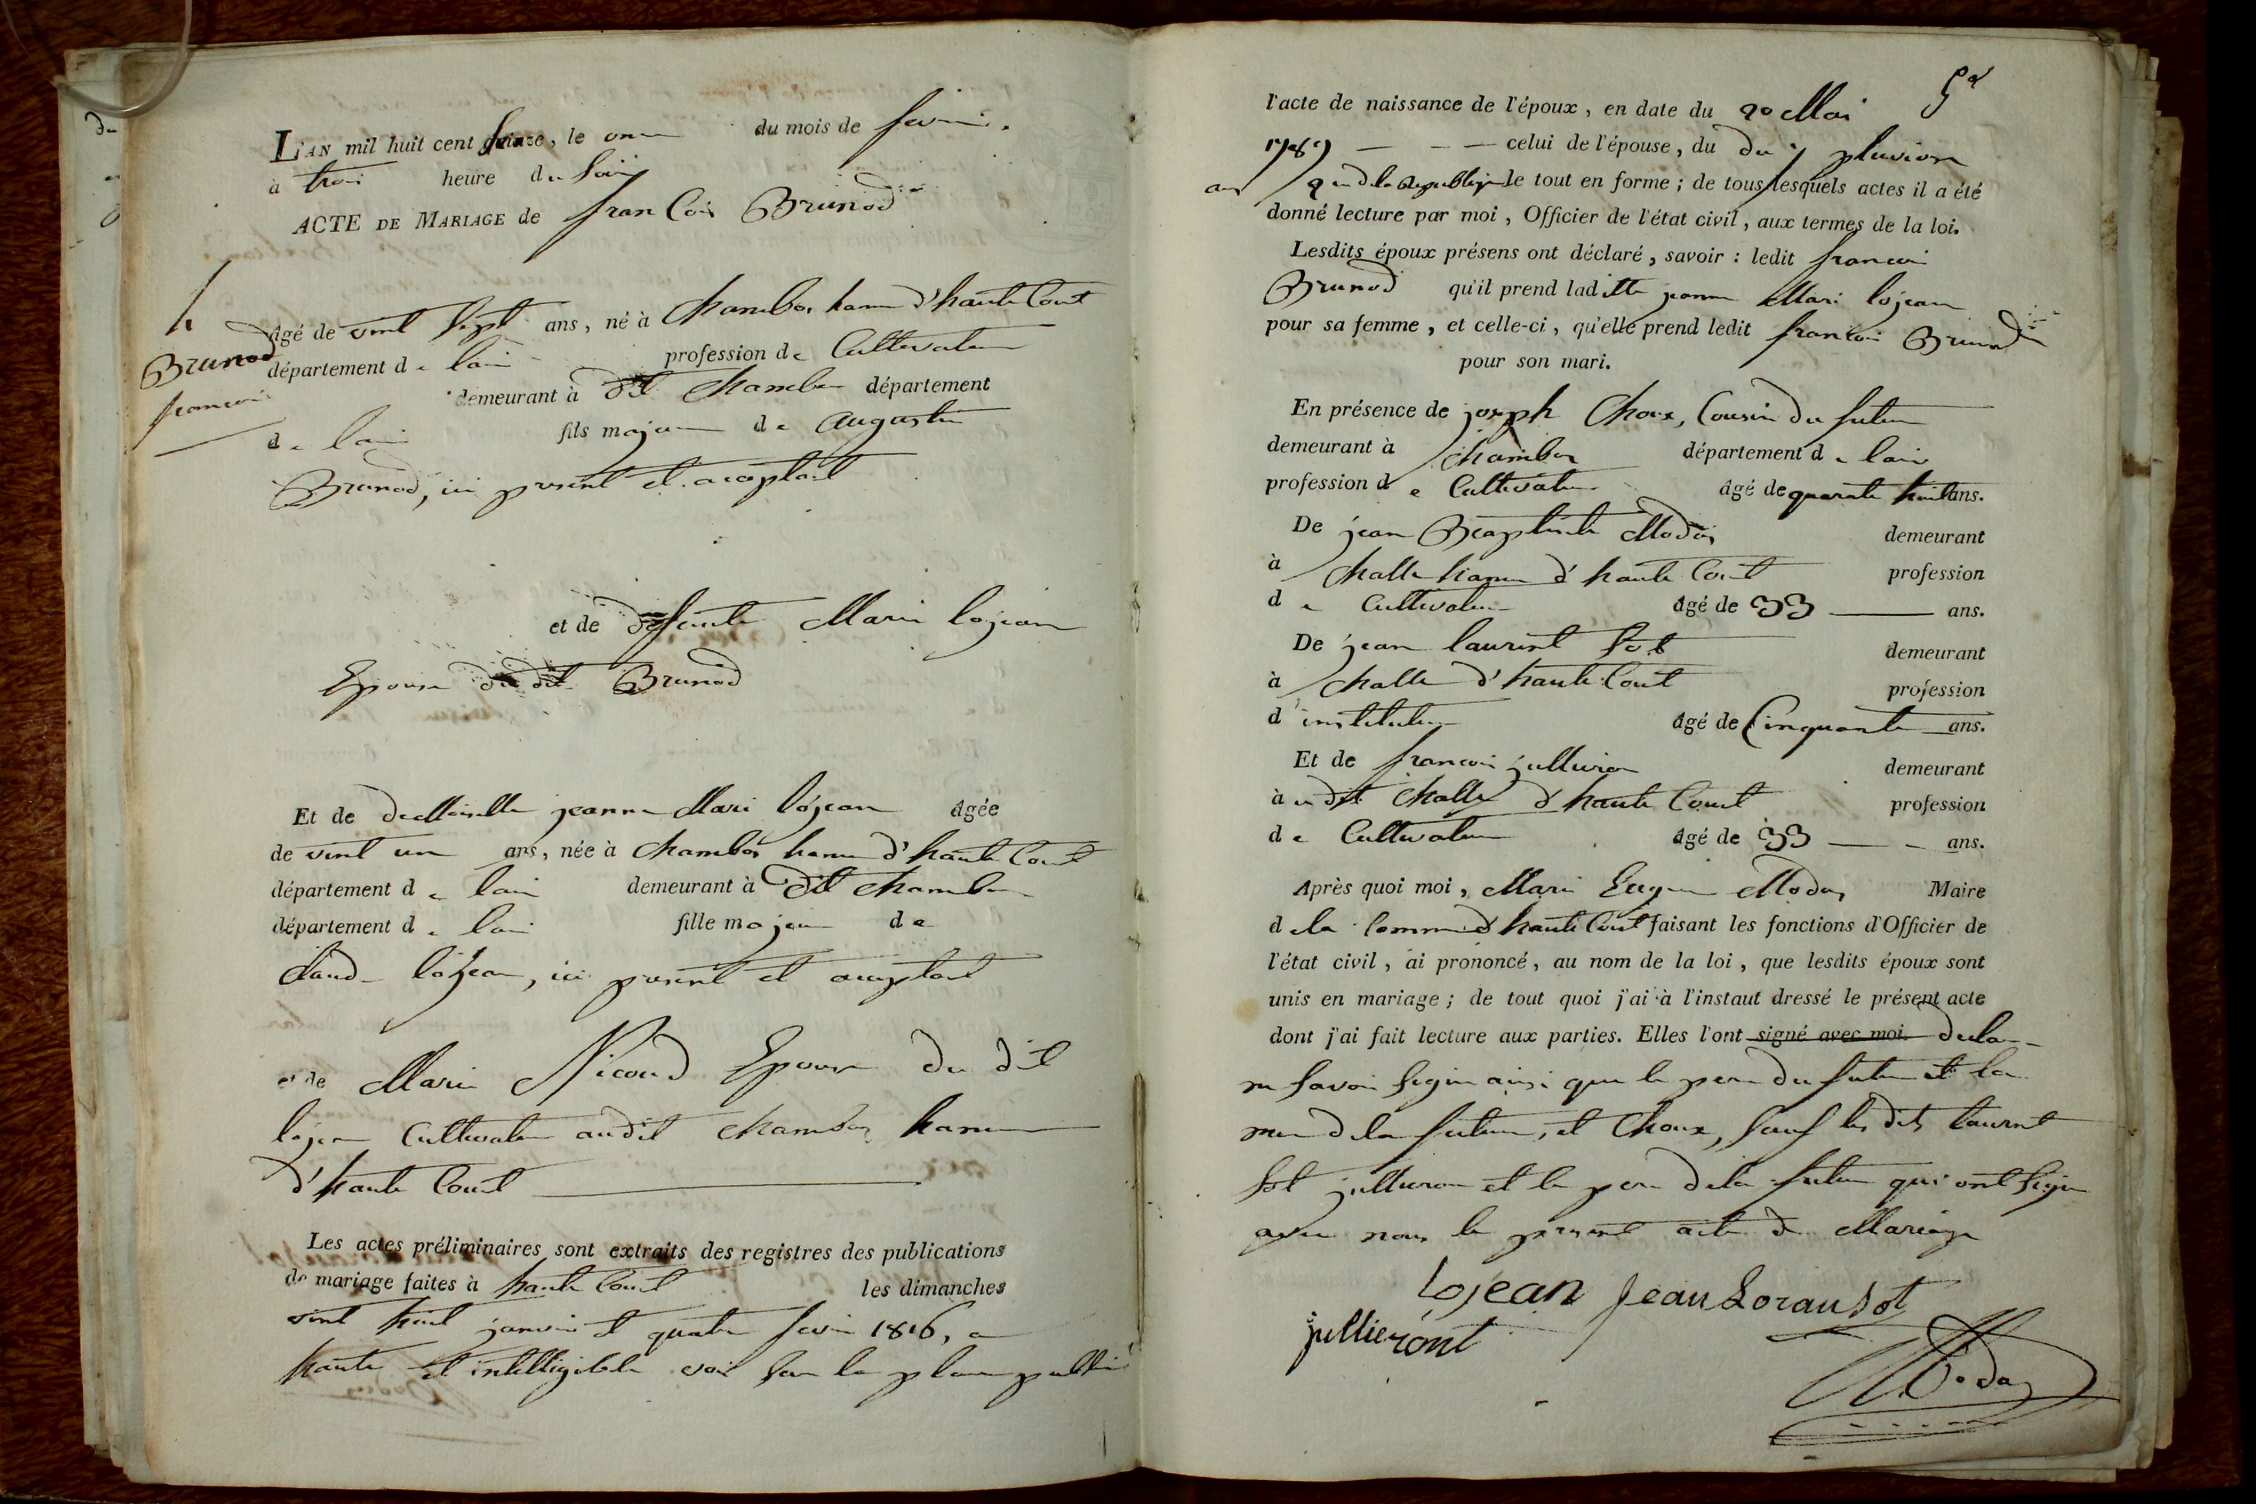 L'AN mil huit cent seize, le onze du mois de fevrier.
à trois heure du soir
ACTE DE MARIAGE de françois Brunod
4
Brunod
françois
âgé de vint sept ans, né à Chambos hameau d'hautecourt
département de lain profession de Cultivateur
demeurant à dit Chambos département
de lain fils majeur de augustin
Brunod, ici present et acceptant
et de defunte Marie lojean
Epouse du dit Brunod
Et de deMoiselle jeanne Marie lojean âgée
de vint un ans, née à chambos hameau d'hautecourt
département de lain demeurant à dit chambos
département de lain fille majeure de
claude lojean, ici present et acceptant
et de Marie Nicoud Epouse du dit
lojean Cultivateur audit chambos hameau
d'hautecourt
Les actes préliminaires sont extraits des registres des publications
de mariage faites à hautecourt les dimanches
vint huit janvier et quatre fevrier 1816, a
haute et intelligible voix sur la place publique
52
l'acte de naissance de l'époux, en date du 20 Mai
1789 — — — celui de l'épouse, du du 7 pluviose
an 2 de la republique le tout en forme; de tous lesquels actes il a été
donné lecture par moi, Officier de l'état civil, aux termes de la loi.
Lesdits époux présens ont déclaré, savoir: ledit francois
Brunod qu'il prend laditte jeanne Marie lojean
pour sa femme, et celle-ci, qu'elle prend ledit francois Brunod
pour son mari.
En présence de joseph Choux, Cousin du futur
demeurant à Chambos département de lain
profession de Cultivateur âgé de quarante huit ans.
De jean Baptiste Modas demeurant
à Challe hameau d'hautecourt profession
de Cultivateur âgé de 33 — ans.
De jean laurent Sot demeurant
à Challe d'hautecourt profession
d'instituteur âgé de Cinquante ans.
Et de francois jullieron demeurant
à u dit Challe d'hautecourt profession
de Cultivateur âgé de 33 — — ans.
Après quoi moi, Marie Eugene Modas Maire
de la Commune d'hautecourt faisant les fonctions d'Officier de
l'état civil, ai prononcé, au nom de la loi, que lesdits époux sont
unis en mariage; de tout quoi j'ai à l'instaut dressé le présent acte
dont j'ai fait lecture aux parties. Elles l'ont signé avec moi. declare
ne savoir signer ainsi que le pere du futur et la
mere de la future, et Choux, sauf les dits laurent
Sot jullieron et le pere de la future qui ont signe
avec nous le present acte de Mariage
Lojean Jean Loran Sot
jullieront
Modas